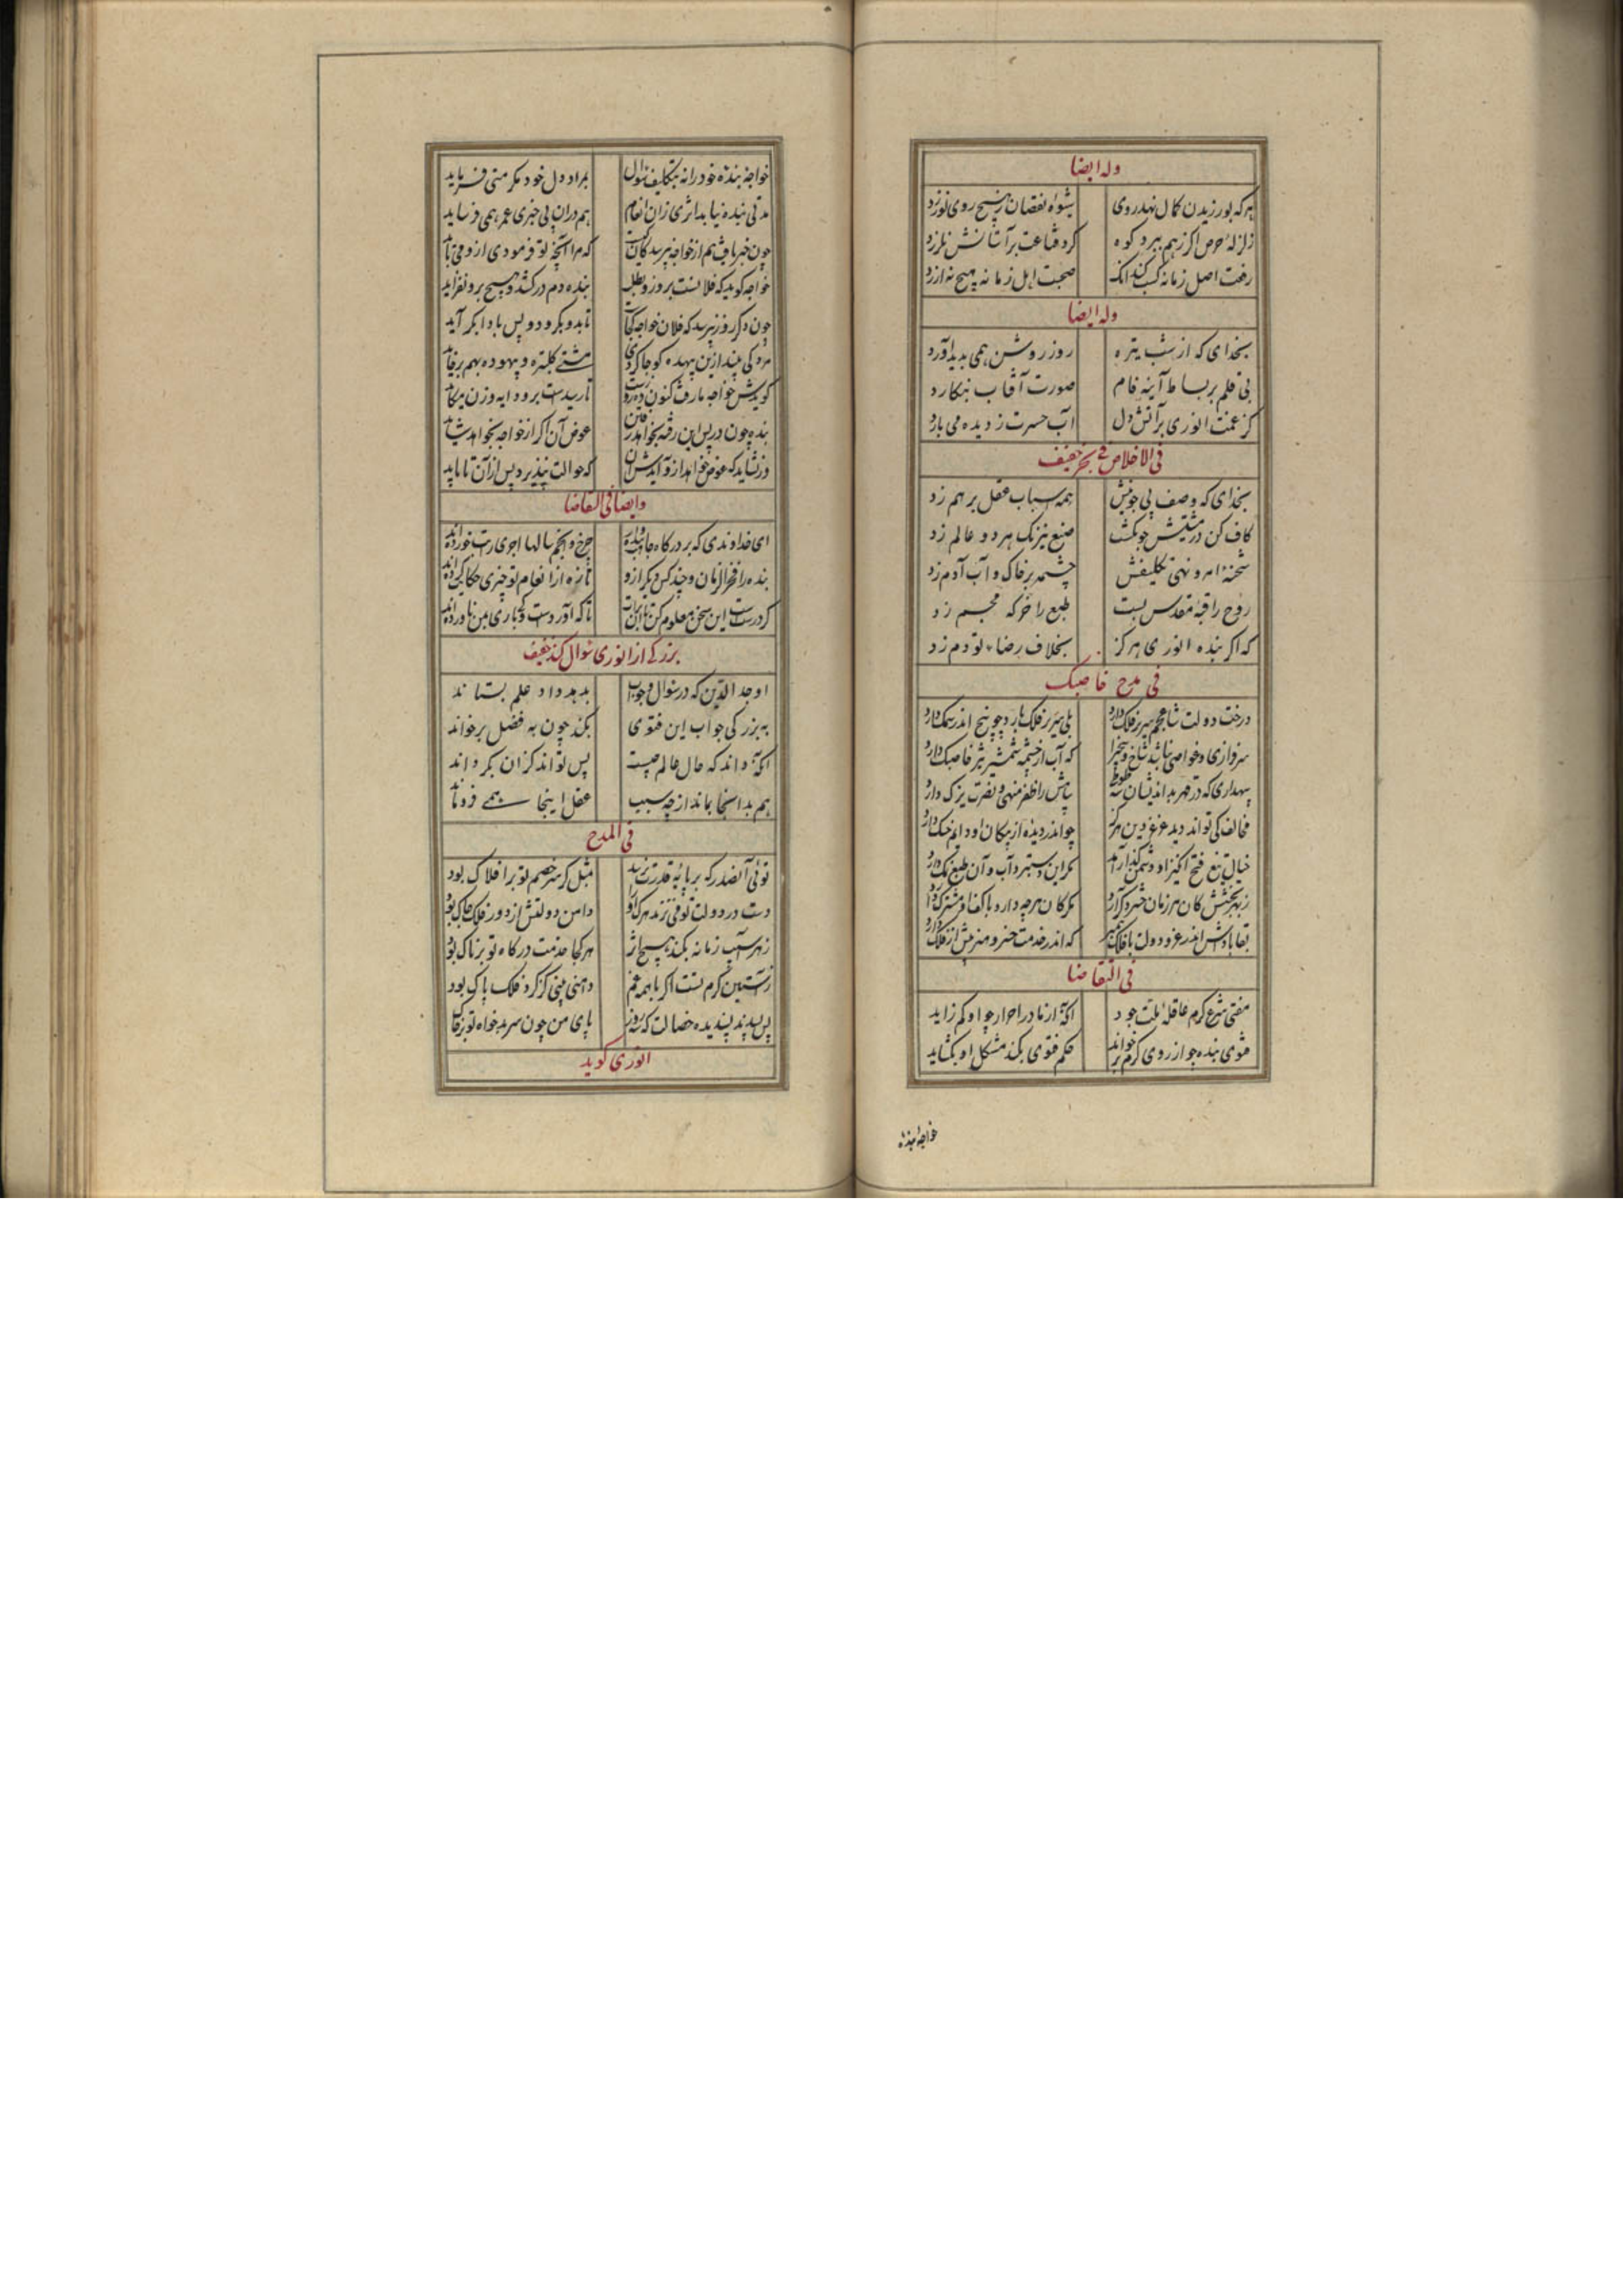 وله ایضا
هرکه بورزیدن کمال نهد روی شیوه نقصان ز هیچ روی نورزد
زلزله حرص اگر ز هم ببرد کوه گرد قناعت بر آستانش نلرزد
رفعت اصل زمانه کسب کند آنک صحبت اهل زمانه هیچ نه ارزد
وله ایضا
بخدای که از شب تیره روز روشن همی پدید آورد
بی قلم بر بساط آینه فام صورت آفتاب بنکارد
کز غمت انوری بر آتش دل آب حسرت ز دیده می بارد
فی الاخلاص فی بحر خفیف
بخدای که وصف بی چونیش همه اسباب عقل بر هم زد
کاف کن در مشیتش چو بگشت صنع نیرنگ هر دو عالم زد
شحنه امر و نهی تکلیفش چشمه بر خاک و آب آدم زد
روح را قبه مقدس بست طبع را خرکه مجسم زد
که اگر بنده انوری هرگز بخلاف رضاء تو دم زد
فی مدح خاصبک
درخت دولت شاه عجم سر بر فلک دارد بلی سر بر فلک یازد چو بیخ اندر سمک دارد
سرافرازی و خواصی نباشد شاخ و بیخی را که آب از چشمه شمشیر خاصبک دارد
سپهداری که در قهر بداندیشان سپاهش را ظفر منهی و نصرت یزک دارد
مخالف کی تواند دید عز و دین هرگز چو اندر دیده از پیکان او دایم خسک دارد
خیال تیغ فتح انگیز او دشمن گذار آمد مکر این دستبرد آب و آن طبع نمک دارد
مگر کان هرچه دارد با کفش مشترک دارد
بقا بادش اندر عز و دولت با فلک همبر که اندر خدمت خسرو منزلش از فلک دارد
فی التقاضا
مفتی شرع کرم عاقله ملت جود آنکه از مادر احرار چو او کم زاید
فتوی بنده چو از روی کرم برخواند حکم فتوی بکند مشکل او بکشاید
خواجه بنده
خواجه بنده خود را نه بتکلیف سوال بمراد دل خود مکرمتی فرماید
مدتی بنده نیابد اثری زان انعام هم در آن بی خبری عمر همی فرساید
چون خبر یافت هم از خواجه بپرسد که مرا آنچه تو فرمودی ازو می باید
خواجه گوید که فلانست برو زو بطلب بنده دم در کشد و هیچ برو نفزاید
چون دگر روز بپرسد که فلان خواجه کجاست تا بدو بگرود و پس با او ابکر آید
مشتی کلتره و بیهوده بهم برخاید
عوض آن اگر از خواجه بخواهد شاید
ور نشاید که عوض خواهد ازو که حوالت نپذیرد پس از آن تا باید
وایضا فی التقاضا
ای خداوندی که بر درگاه جاه چرخ و انجم سالها اجری و راتب خورده اند
بنده را فخر الزمان و چند کس دیگر ازو تازه از انعام تو چیزی حکایت کرده اند
گر درست این سخن معلوم کن تا آن برات تا که آورد دست کو باری بمن ناورده اند
بزرگی از انوری سوال کند خفیف
اوحد الدین که در سوال و جواب بدهد داد علم بستاند
به بزرگی جواب این فتوی بکند چون به فضل برخواند
آنکه داند که حال عالم چیست پس تواند کزان بگرداند
هم بدانجا بماند از چه سبب عقل اینجا همی فروماند
فی المدح
توئی آنصدر که بر پایه قدرت نرسد بمثل گر سر خصم تو بر افلاک بود
دست در دولت توفیق زند هر که او دامن دولتش از دور فلک چاک بود
زهر آسیب زمانه نکند هیچ اثر هر کجا خدمت درگاه تو تریاک بود
ز آستین کرم تست اگر با همه غم دامنی بینی کز گرد فلک پاک بود
پس پسندد پسندیده خصالت که پای من چون سر بدخواه تو بر خاک
انوری گوید